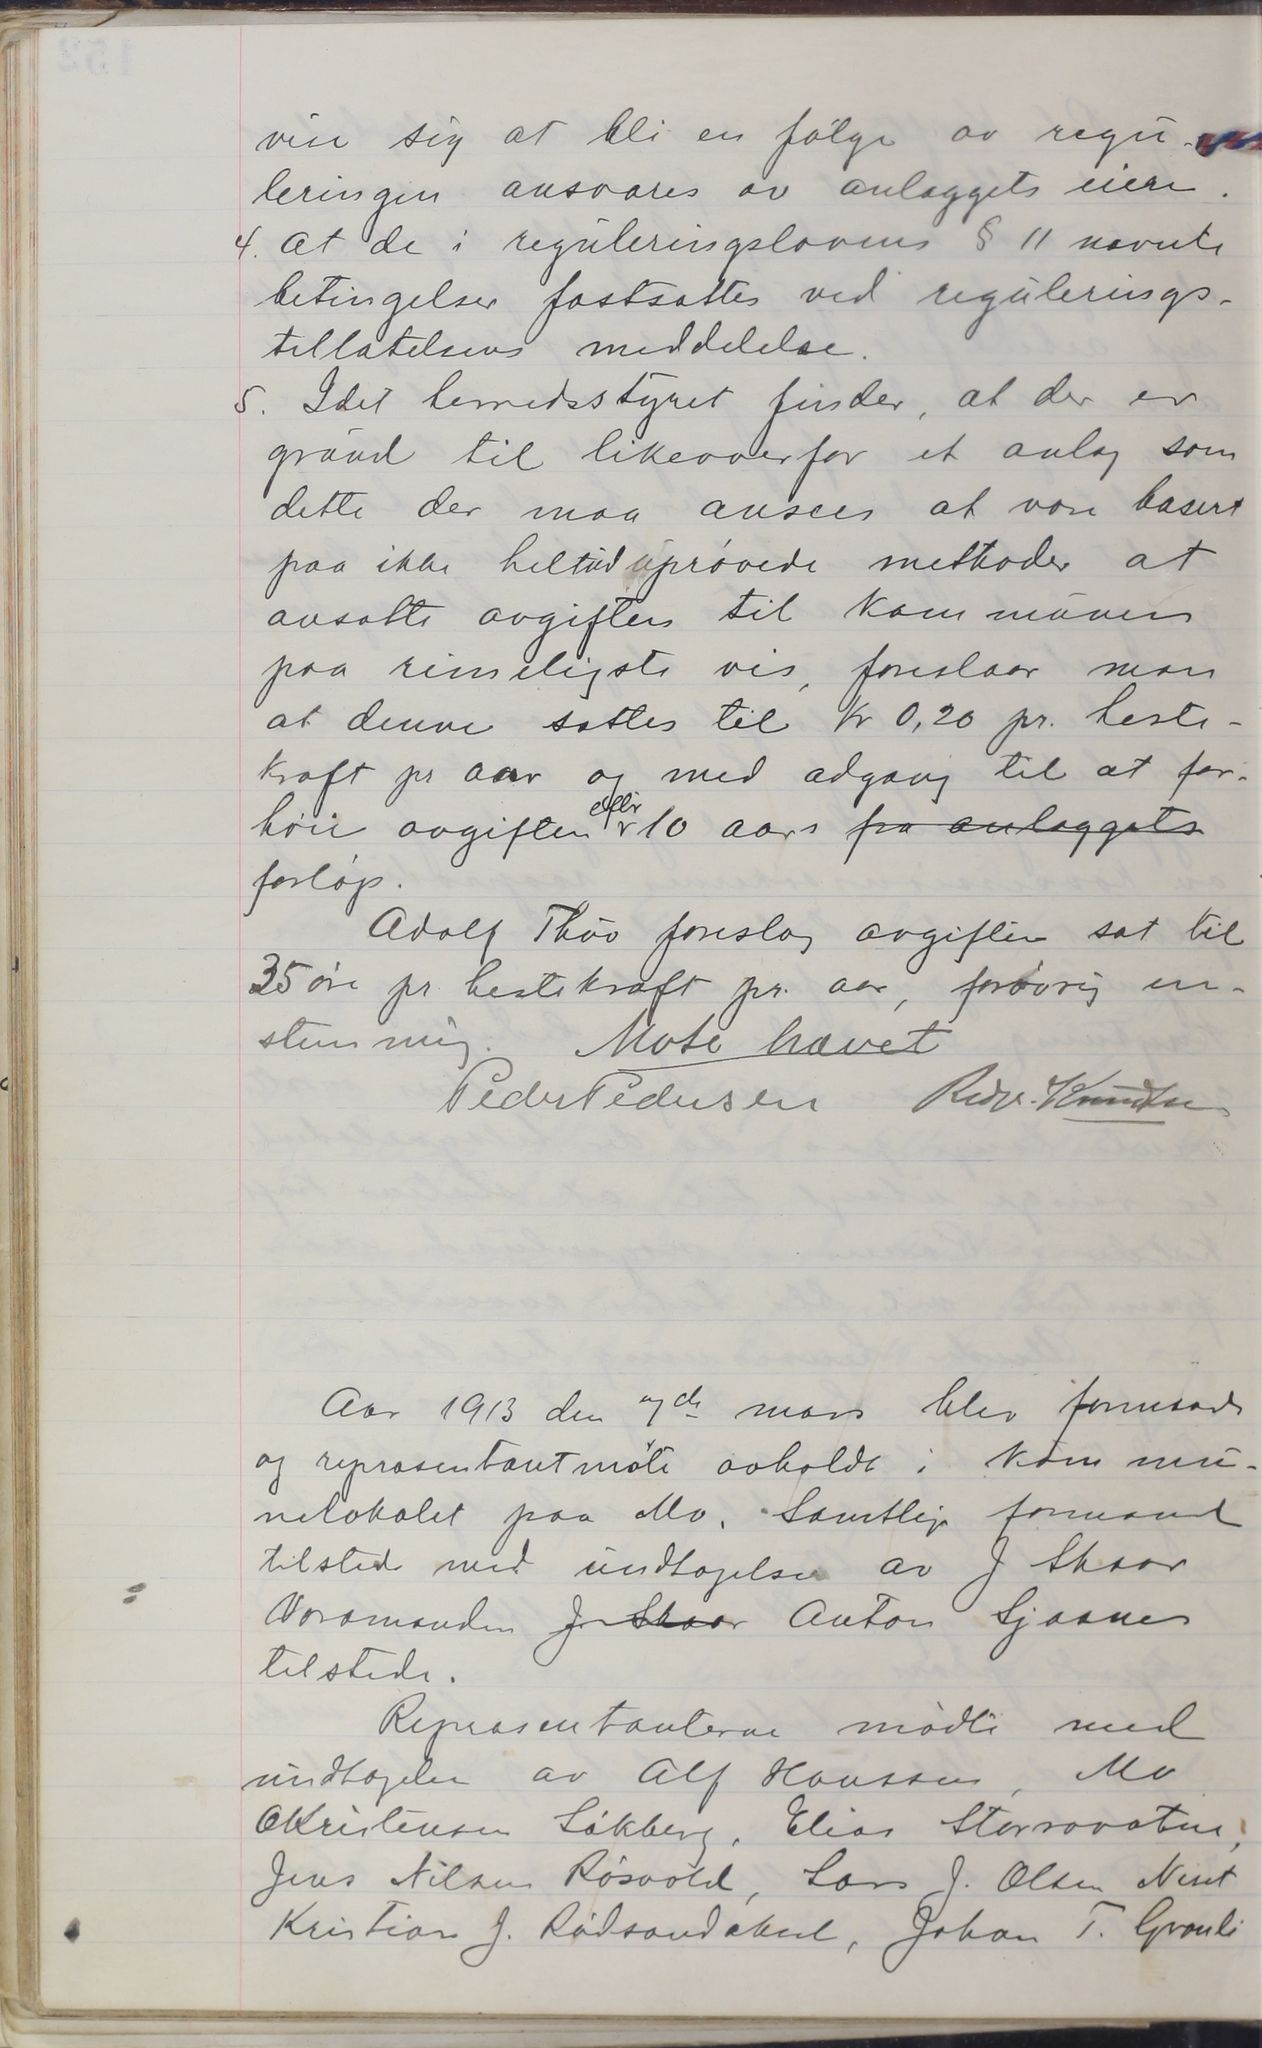 vise sig at bli en følge av regu-
leringen ansvares av anlæggets eiere.
4. At de i reguleringslovens § 11 nævnte
betingelser fastsættes ved regulerings-
tillatelsens meddelelse.
5. Idet herredsstyret finder, at der er
grund til likeoverfor et anlæg som
dette der maa ansees at være basert
paa ikke heltud uprøvede methoder at
ansætte avgiften til kommunen
paa rimeligste vis, foreslaar man
at denne sættes til Kr 0,20 pr. heste-
kraft pr aar og med adgang til at for-
høie avgiften efter 10 aars fra anlæggets
forløp.
Adolf Thuv foreslog avgiften sat til
35 øre pr. hestekraft pr. aar, forøvrig en-
stemmig. Møte hævet
Peder Pedersen Knudsen
Aar 1913 den 7de mars blev formands
og repræsentantmøte avholdt i kommu-
nelokalet paa Mo. Samtlige formænd
tilstede med undtagelse av J Skaar
Varamanden J. Skaar Anton Sjaanes
tilstede.
Repræsentanterne mødte med
undtagelse av Alf Hanssen, Mo
O Kristensen Søkberg, Elias Storravatne,
Jens Nilsen Røsvold, Lars J. Olsen
Kristian J. Rødsandaker, Johan T. Grønli